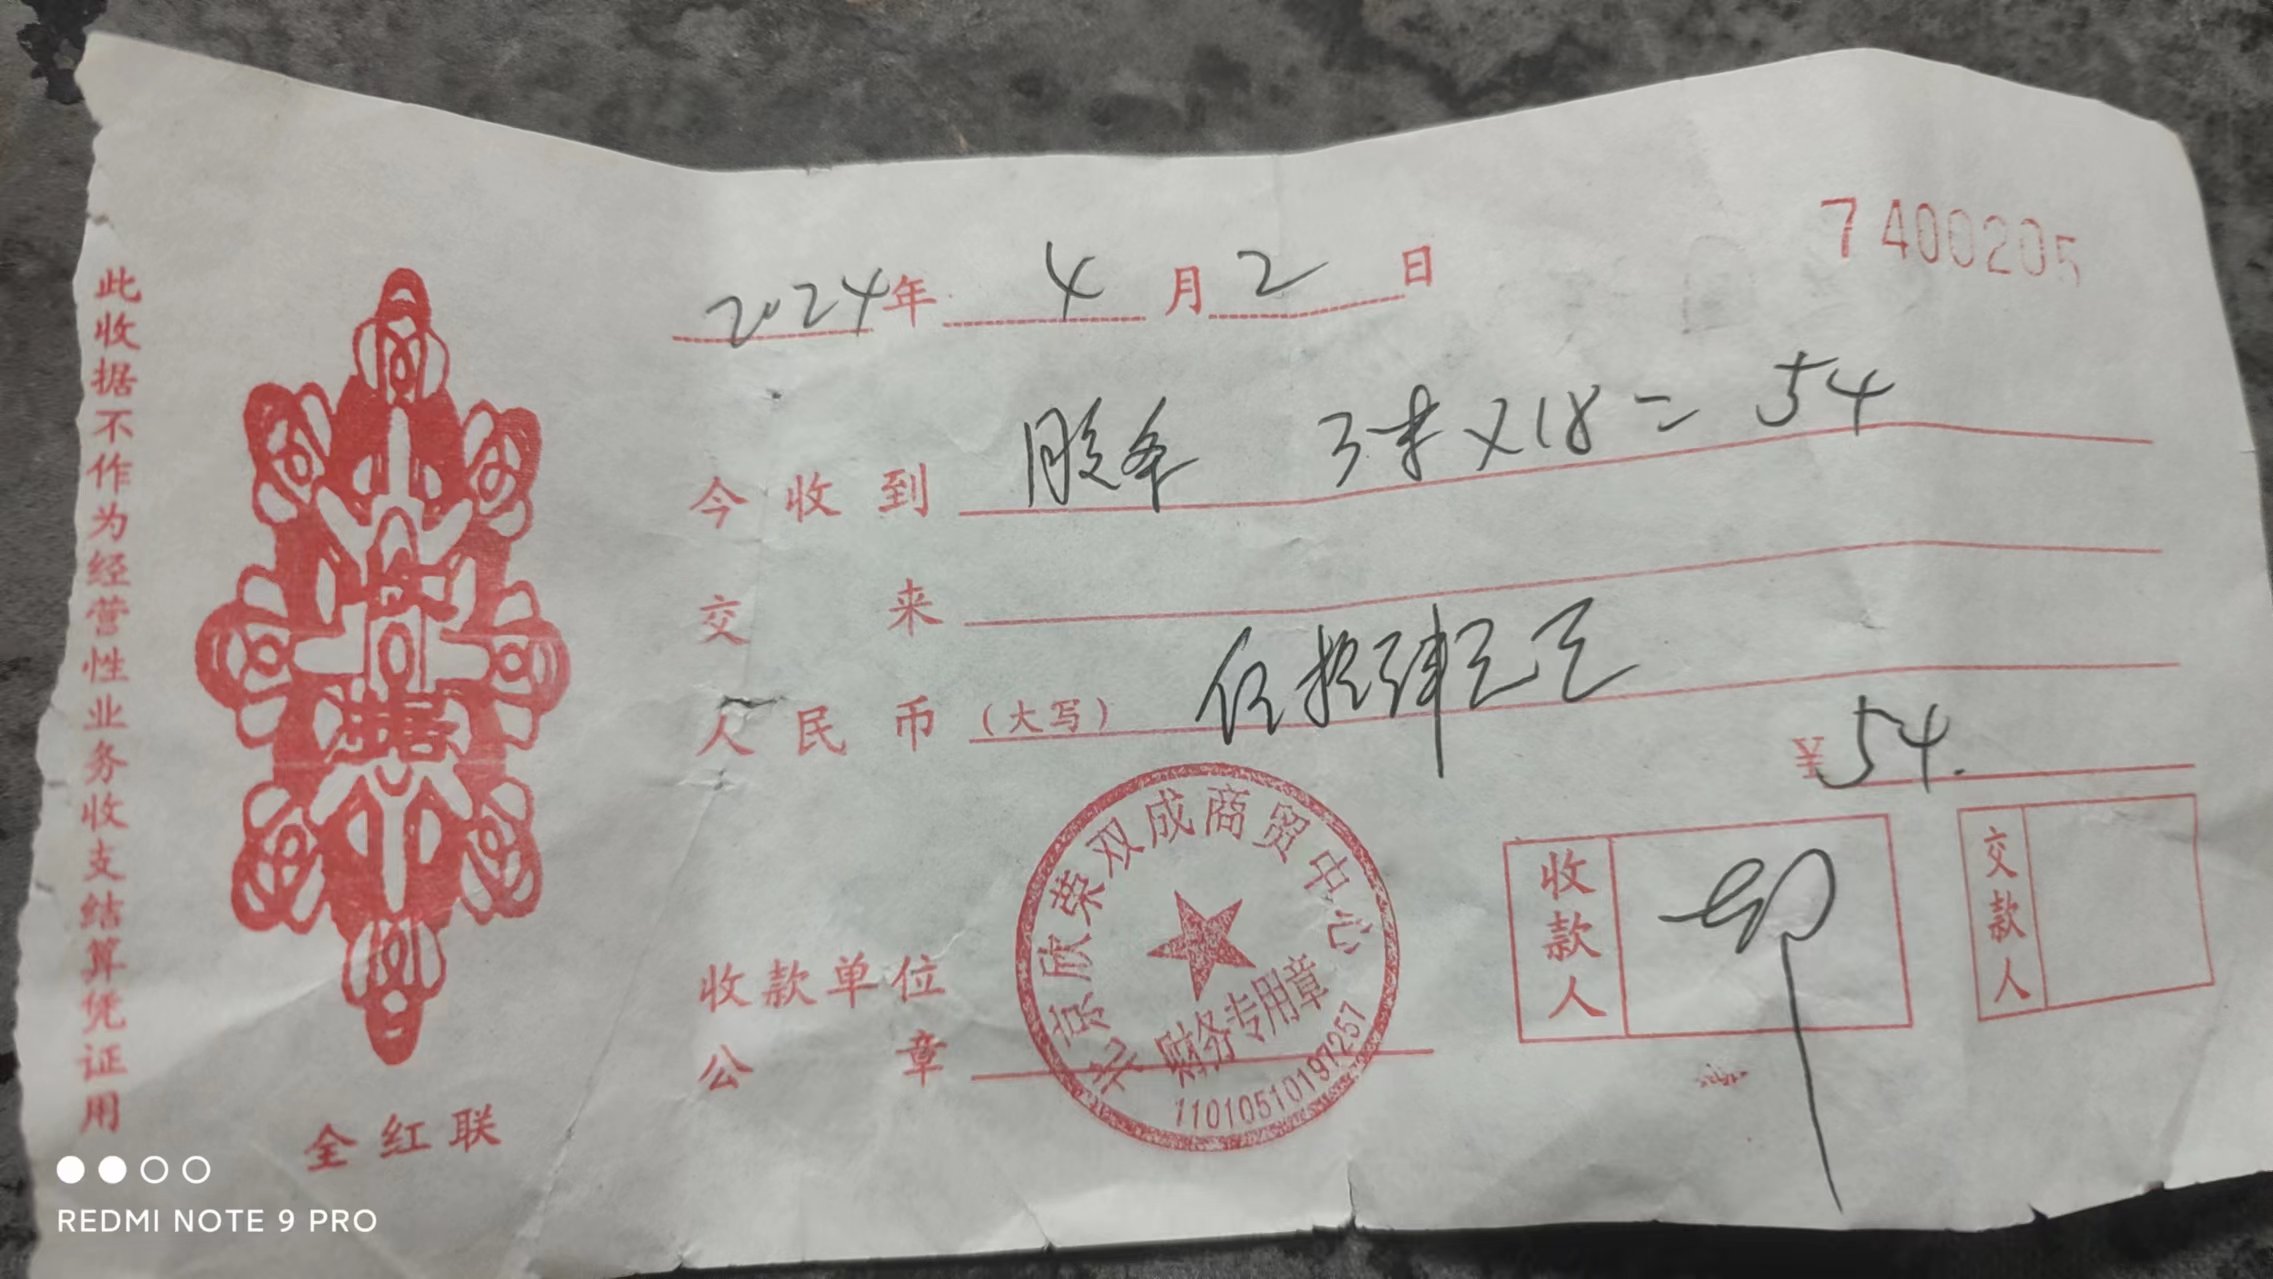 此收据不作为经营性业务收支结算凭证用
收
据
全红联
2024年 4 月 2 日
7400205
今收到 胶条 3米×18=54
交来
人民币(大写) 伍拾肆元
¥54.
收款单位
公章
北京欣荣双成商贸中心
财务专用章
11010510197257
收款人
交款人
REDMI NOTE 9 PRO